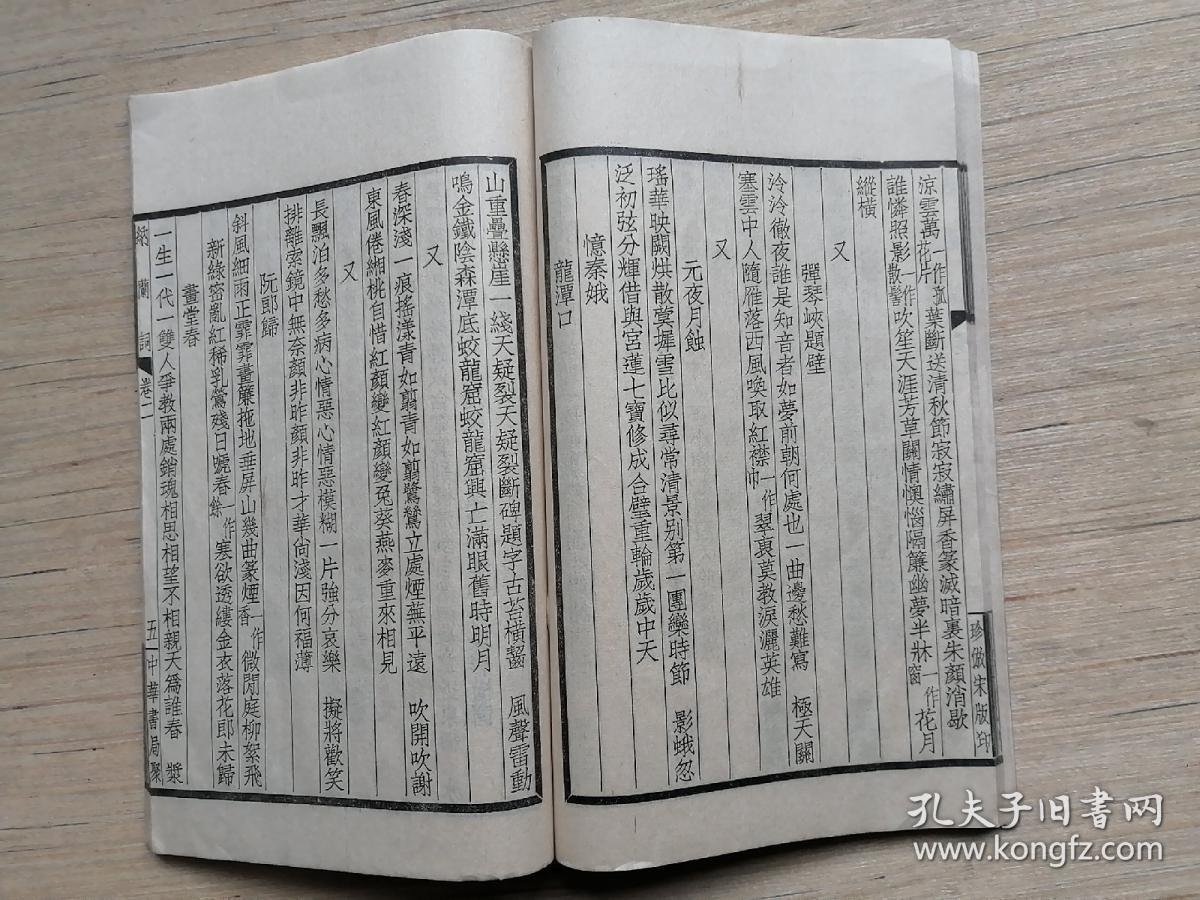 涼雲萬一作孤葉斷送清秋節寂寂繡屏香篆滅暗裏朱顏消歇
花片
誰憐照影一作吹笙天涯芳草關情懊惱隔簾幽夢半牀一作花月
散髻
窗
縱橫
又
彈琴峽題壁
泠泠徹夜誰是知音者如夢前朝何處也一曲邊愁難寫 極天關
塞雲中人隨雁落西風喚取紅襟一作翠裏莫教淚灑英雄
巾
又
元夜月蝕
瑤華映闕烘散蓂墀雪比似尋常清景別第一團欒時節 影蛾忽
泛初弦分輝借與宮蓮七寶修成合璧重輪歲歲中天
憶秦娥
龍潭口
珍倣宋版印
山重疊懸崖一綫天疑裂天疑裂斷碑題字古苔橫齧 風聲雷動
鳴金鐵陰森潭底蛟龍窟蛟龍窟興亡滿眼舊時明月
又
春深淺一痕搖漾青如翦青如翦鷺鷥立處煙蕪平遠 吹開吹謝
東風倦緗桃自惜紅顏變紅顏變兔葵燕麥重來相見
又
長飄泊多愁多病心情惡心情惡模糊一片強分哀樂 擬將歡笑
排離索鏡中無奈顏非昨顏非昨才華尚淺因何福薄
阮郎歸
斜風細雨正霏霏畫簾拖地垂屏山幾曲篆煙一作微閒庭柳絮飛
香
新綠密亂紅稀乳鶯殘日嗁春一作寒欲透縷金衣落花郎未歸
餘
畫堂春
一生一代一雙人爭教兩處銷魂相思相望不相親天爲誰春 漿
納蘭詞 卷一 五 中華書局聚
孔夫子旧书网
www.kongfz.com